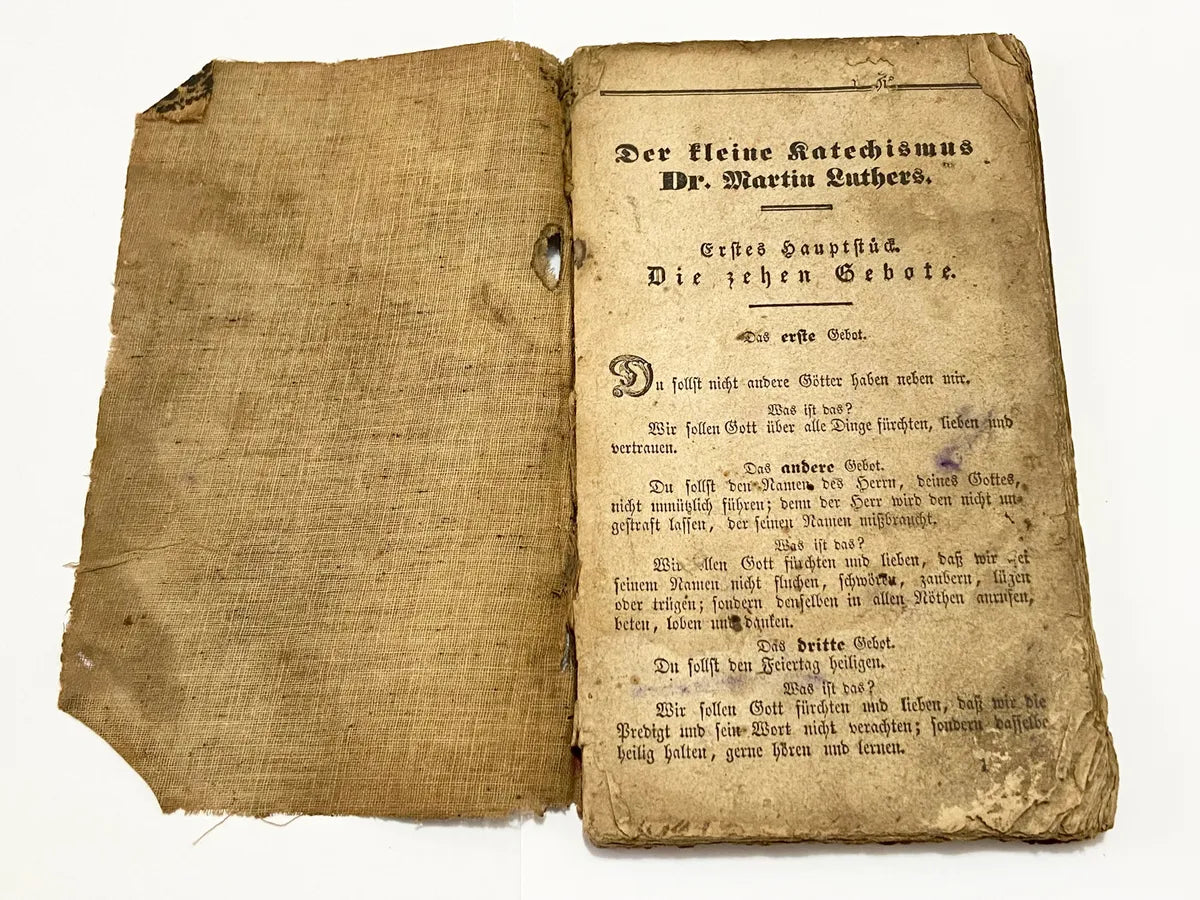 Der kleine Katechismus
Dr. Martin Luthers.
Erstes Hauptstück.
Die zehen Gebote.
Das erste Gebot.
Du sollst nicht andere Götter haben neben mir.
Was ist das?
Wir sollen Gott über alle Dinge fürchten, lieben und
vertrauen.
Das andere Gebot.
Du sollst den Namen des Herrn, deines Gottes,
nicht unnützlich führen; denn der Herr wird den nicht un-
gestraft lassen, der seinen Namen mißbraucht.
Was ist das?
Gott fürchten und lieben, daß wir
seinem Namen nicht fluchen, schwören, zaubern, lügen
oder trügen; sondern denselben in allen Nöthen anrufen,
beten, loben und danken.
Das dritte Gebot.
Du sollst den Feiertag heiligen.
Was ist das?
Wir sollen Gott fürchten und lieben, daß wir die
Predigt und sein Wort nicht verachten; sondern dasselbe
heilig halten, gerne hören und lernen.
1